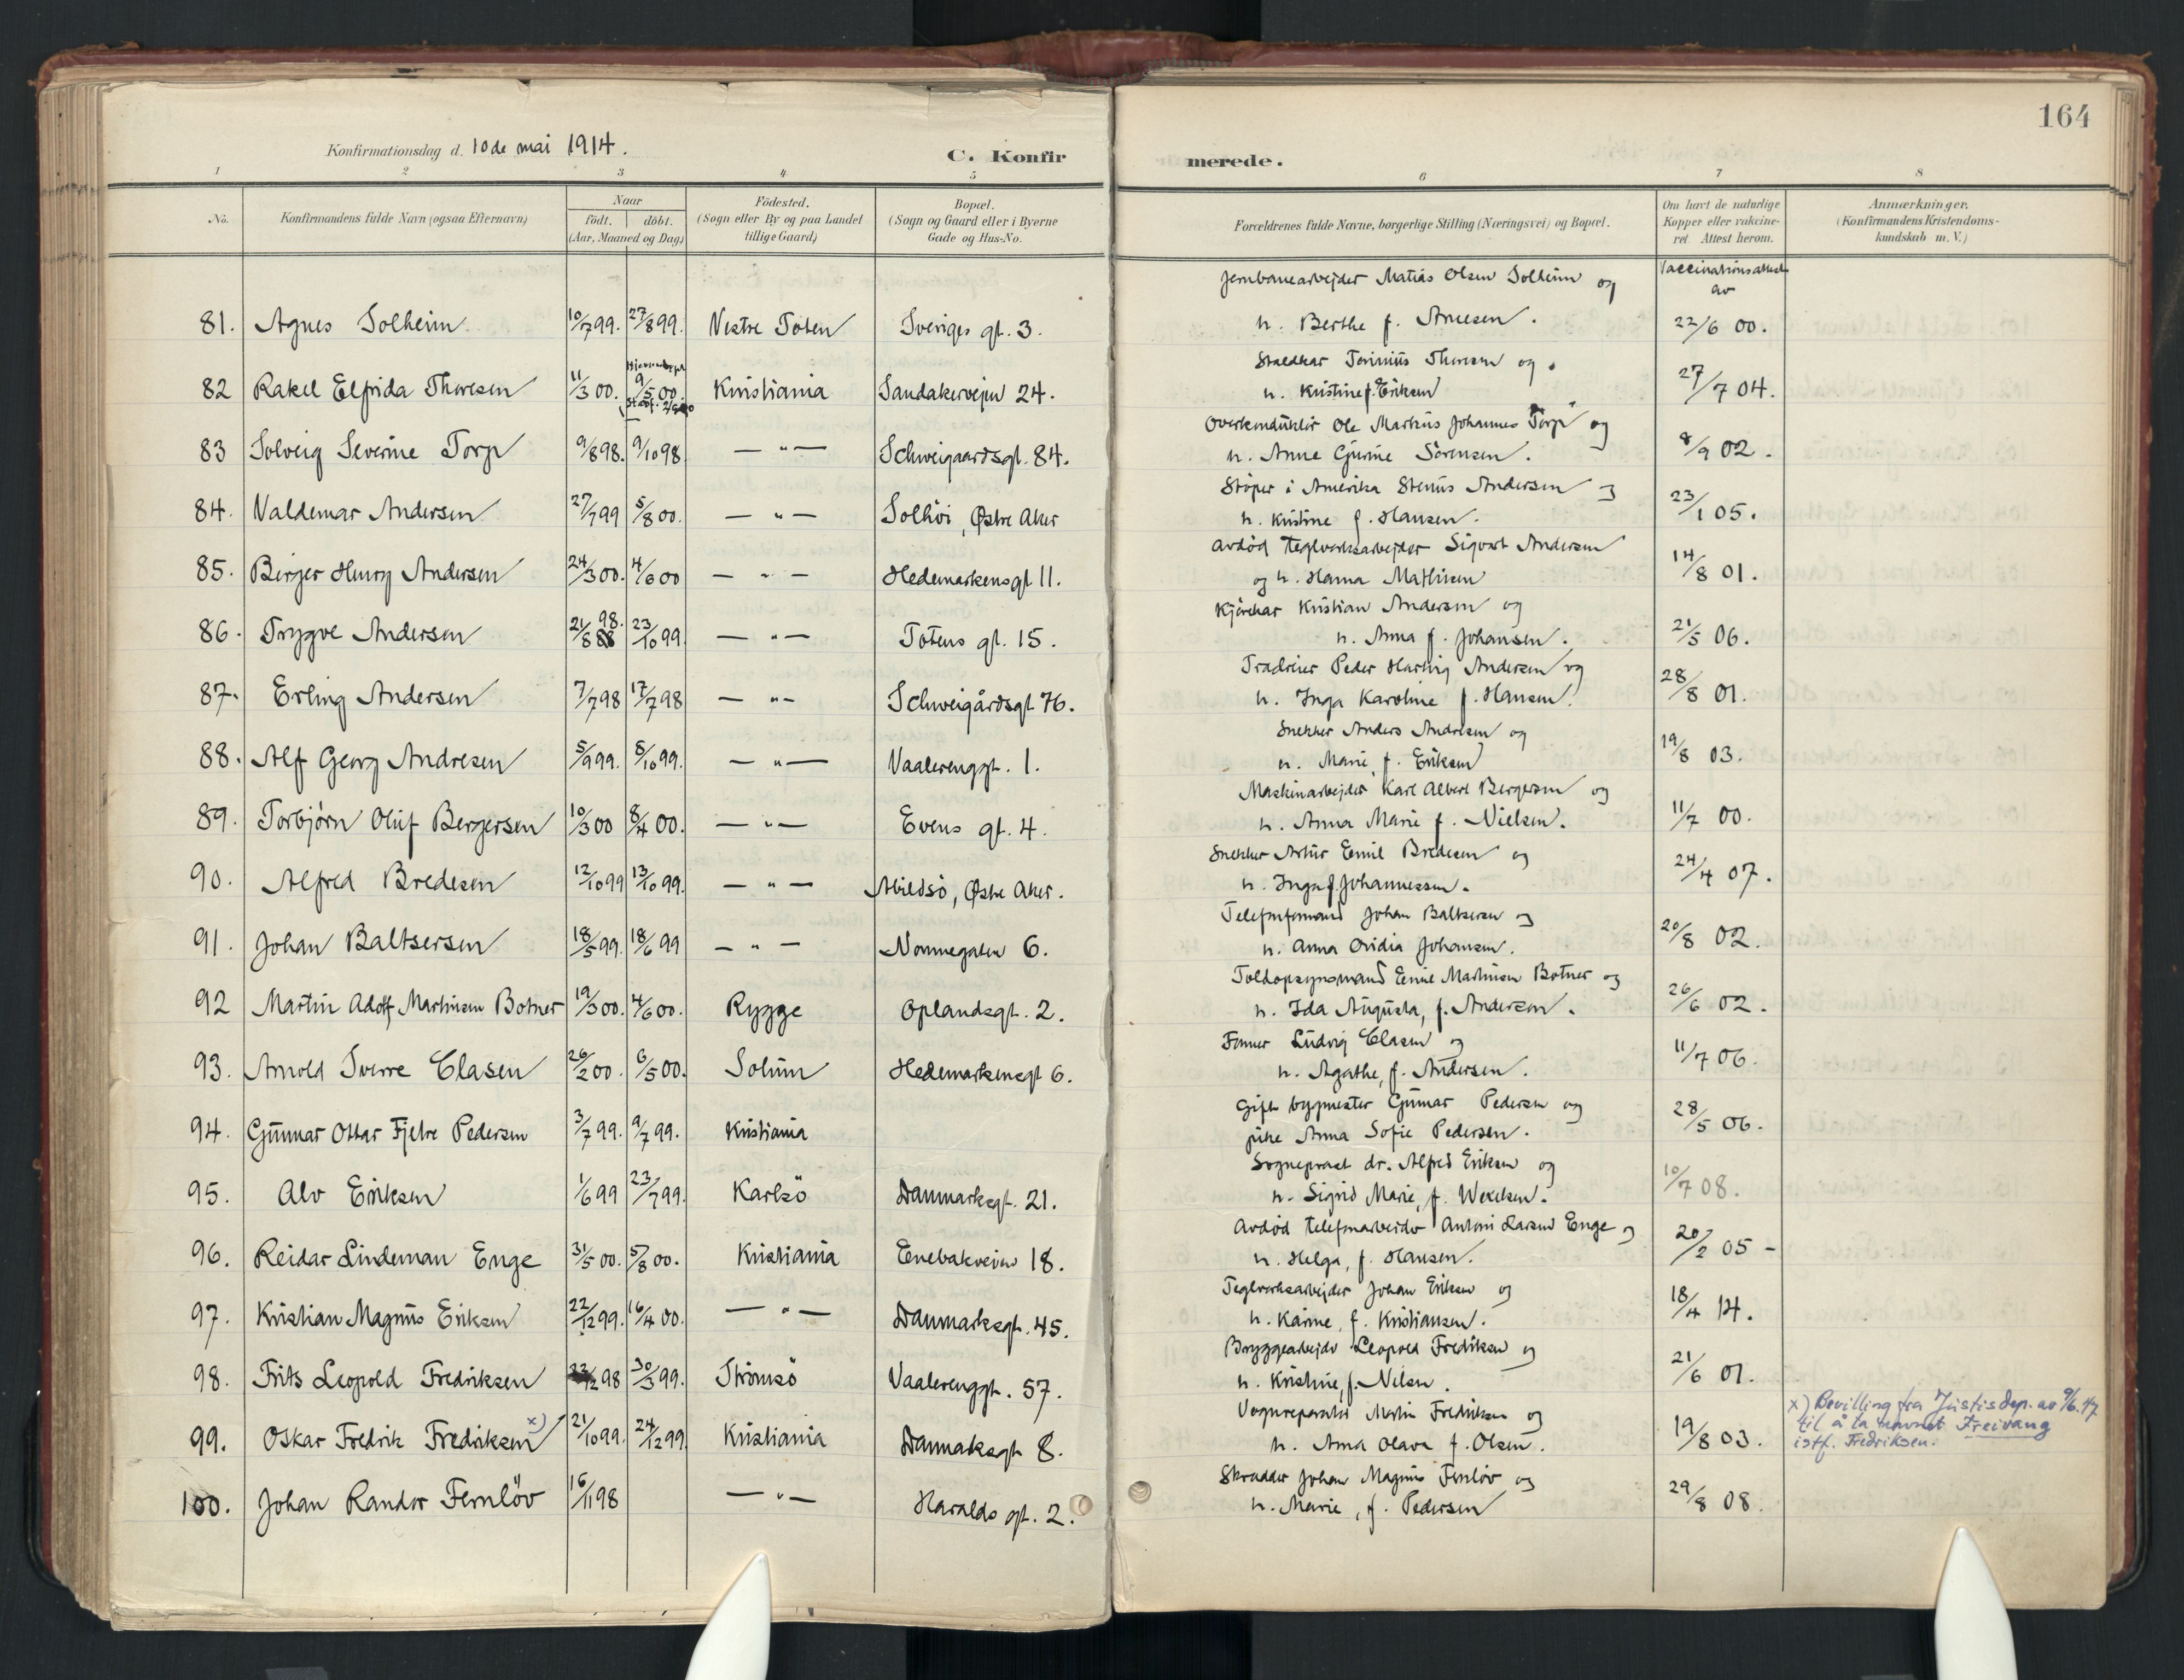 164
Konfirmationsdag d. 10de mai 1914.
C. Konfirmerede.
1 2 3 4 5 6 7 8
No. Konfirmandens fulde Navn (ogsaa Efternavn) Naar födt. döbt. (Aar, Maaned og Dag) Födested. (Sogn eller By og paa Landet tillige Gaard) Bopæl. (Sogn og Gaard eller i Byerne Gade og Hus-No. Forældrenes fulde Navne, borgerlige Stilling (Næringsvei) og Bopæl. Om havt de naturlige Kopper eller vakcineret. Attest herom. Anmærkninger. (Konfirmandens Kristendomskundskab m. V.)
Jernbanearbejder Matias Olsen Solheim og Vaccinationsattest av
81. Agnes Solheim 10/7 99. 27/8 99. Vestre Toten Sveriges gt. 3. h. Berthe f. 22/6 00.
Staldkar Thoresen og
82 Rakel Elfrida Thoresen 11/3 00. 9/5 00. Kristiania Sandakervejen 24. h. Kristine f. Eriksen 27/7 04.
Overkonduktör Ole Markus Johannes Torp og
83 Solveig Severine Torp 9/8 98. 9/10 98 — " — Schweigaardsgt. 84. h. Anne Gurine Sörensen. 8/9 02.
Stöper i Amerika Stenius Andersen og
84. Valdemar Andersen 27/7 99 5/8 00. — " — Solhöi, Østre Aker h. Kristine f. Hansen. 23/1 05.
Avdöd teglverksarbejder Sigvart Andersen
85. Birger Henry Andersen 24/3 00. 4/6 00 — " — Hedemarkensgt 11. og h. Hanna Mathisen 14/8 01.
Kjörekar Kristian Andersen og
86. Trygve Andersen 21/8 98. 23/10 99. — " — Totens gt. 15. h. Anna f. Johansen. 21/5 06.
Peder Hartvig Andersen og
87. Erling Andersen 7/7 98 17/7 98 — " — Schweigårdsgt 76. h. Inga Karoline f. Hansen. 28/8 01.
Snekker Anders Andresen og
88. Alf Georg Andresen 5/9 99. 8/10 99. — " — Vaalerenggt. 1. h. Marie, f. Eriksen 19/8 03.
Maskinarbejder Karl Albert Bergersen og
89. Torbjörn Oluf Bergersen 10/3 00 8/4 00. — " — Evens gt. 4. h. Anna Marie f. Nielsen. 11/7 00.
Snekker Artur Emil Bredesen og
90. Alfred Bredesen 12/10 99 13/10 99. — " — Abildsö, Østre Aker. h. Inga f. Johannessen. 24/4 07.
Telefonformand Johan Baltsersen og
91. Johan Baltsersen 18/5 99. 18/6 99 — " — Nonnegaten 6. h. Anna Ovidia Johansen. 20/8 02.
Toldopsynsmand Emil Martinsen Botner og
92 Martin Adolf Martinsen Botner 19/3 00. 4/6 00. Rygge Oplandsgt. 2. h. Ida Augusta, f. Andersen. 26/6 02.
Former Ludvig Clasen og
93. Arnold Sverre Clasen 26/2 00. 6/5 00. Solum Hedemarkensgt 6. h. Agathe, f. Andersen. 11/7 06.
Gift bygmester Gunnar Pedersen og
94. Gunnar Ottar Fjelre Pedersen 3/7 99. 9/7 99. Kristiania pike Anna Sofie Pedersen. 28/5 06.
Sogneprest dr. Alfred Eriksen og
95. Alv Eriksen 1/6 99 23/7 99. Karlsö Danmarksgt. 21. h. Sigrid Marie, f. Wexelsen. 10/7 08.
Avdöd telefonarbeider Antoni Larsen Enge og
96. Reidar Lindeman Enge 31/5 00. 5/8 00. Kristiania Enebakveien 18. h. Helga, f. Hansen. 20/2 05 -
Teglverksarbejder Johan Eriksen og
97. Kristian Magnus Eriksen 22/12 99. 16/4 00. — " — Danmarksgt. 45. h. Karine, f. Kristiansen. 18/4 14.
Bryggearbejder Leopold Fredriksen og
98. Frits Leopold Fredriksen 22/12 98 30/3 99. Strömsö Vaalerenggt. 57. h. Kristine, f. Nilsen. 21/6 01.
Vognreparatör Martin Fredriksen og
99. Oskar Fredrik Fredriksen x) 21/10 99. 24/12 99 Kristiania Danmarksgt 8. h. Anna Olava f. Olsen. 19/8 03.
x) Bevilling fra Justisdep. av 9/6.17
til å ta navnet Freivang
istf. Fredriksen.
Skrædder Johan Magnus Fernlöv og
100. Johan Randor Fernlöv 16/11 98 — " — Haralds gt. 2. h. Marie, f. Pedersen 29/8 08.